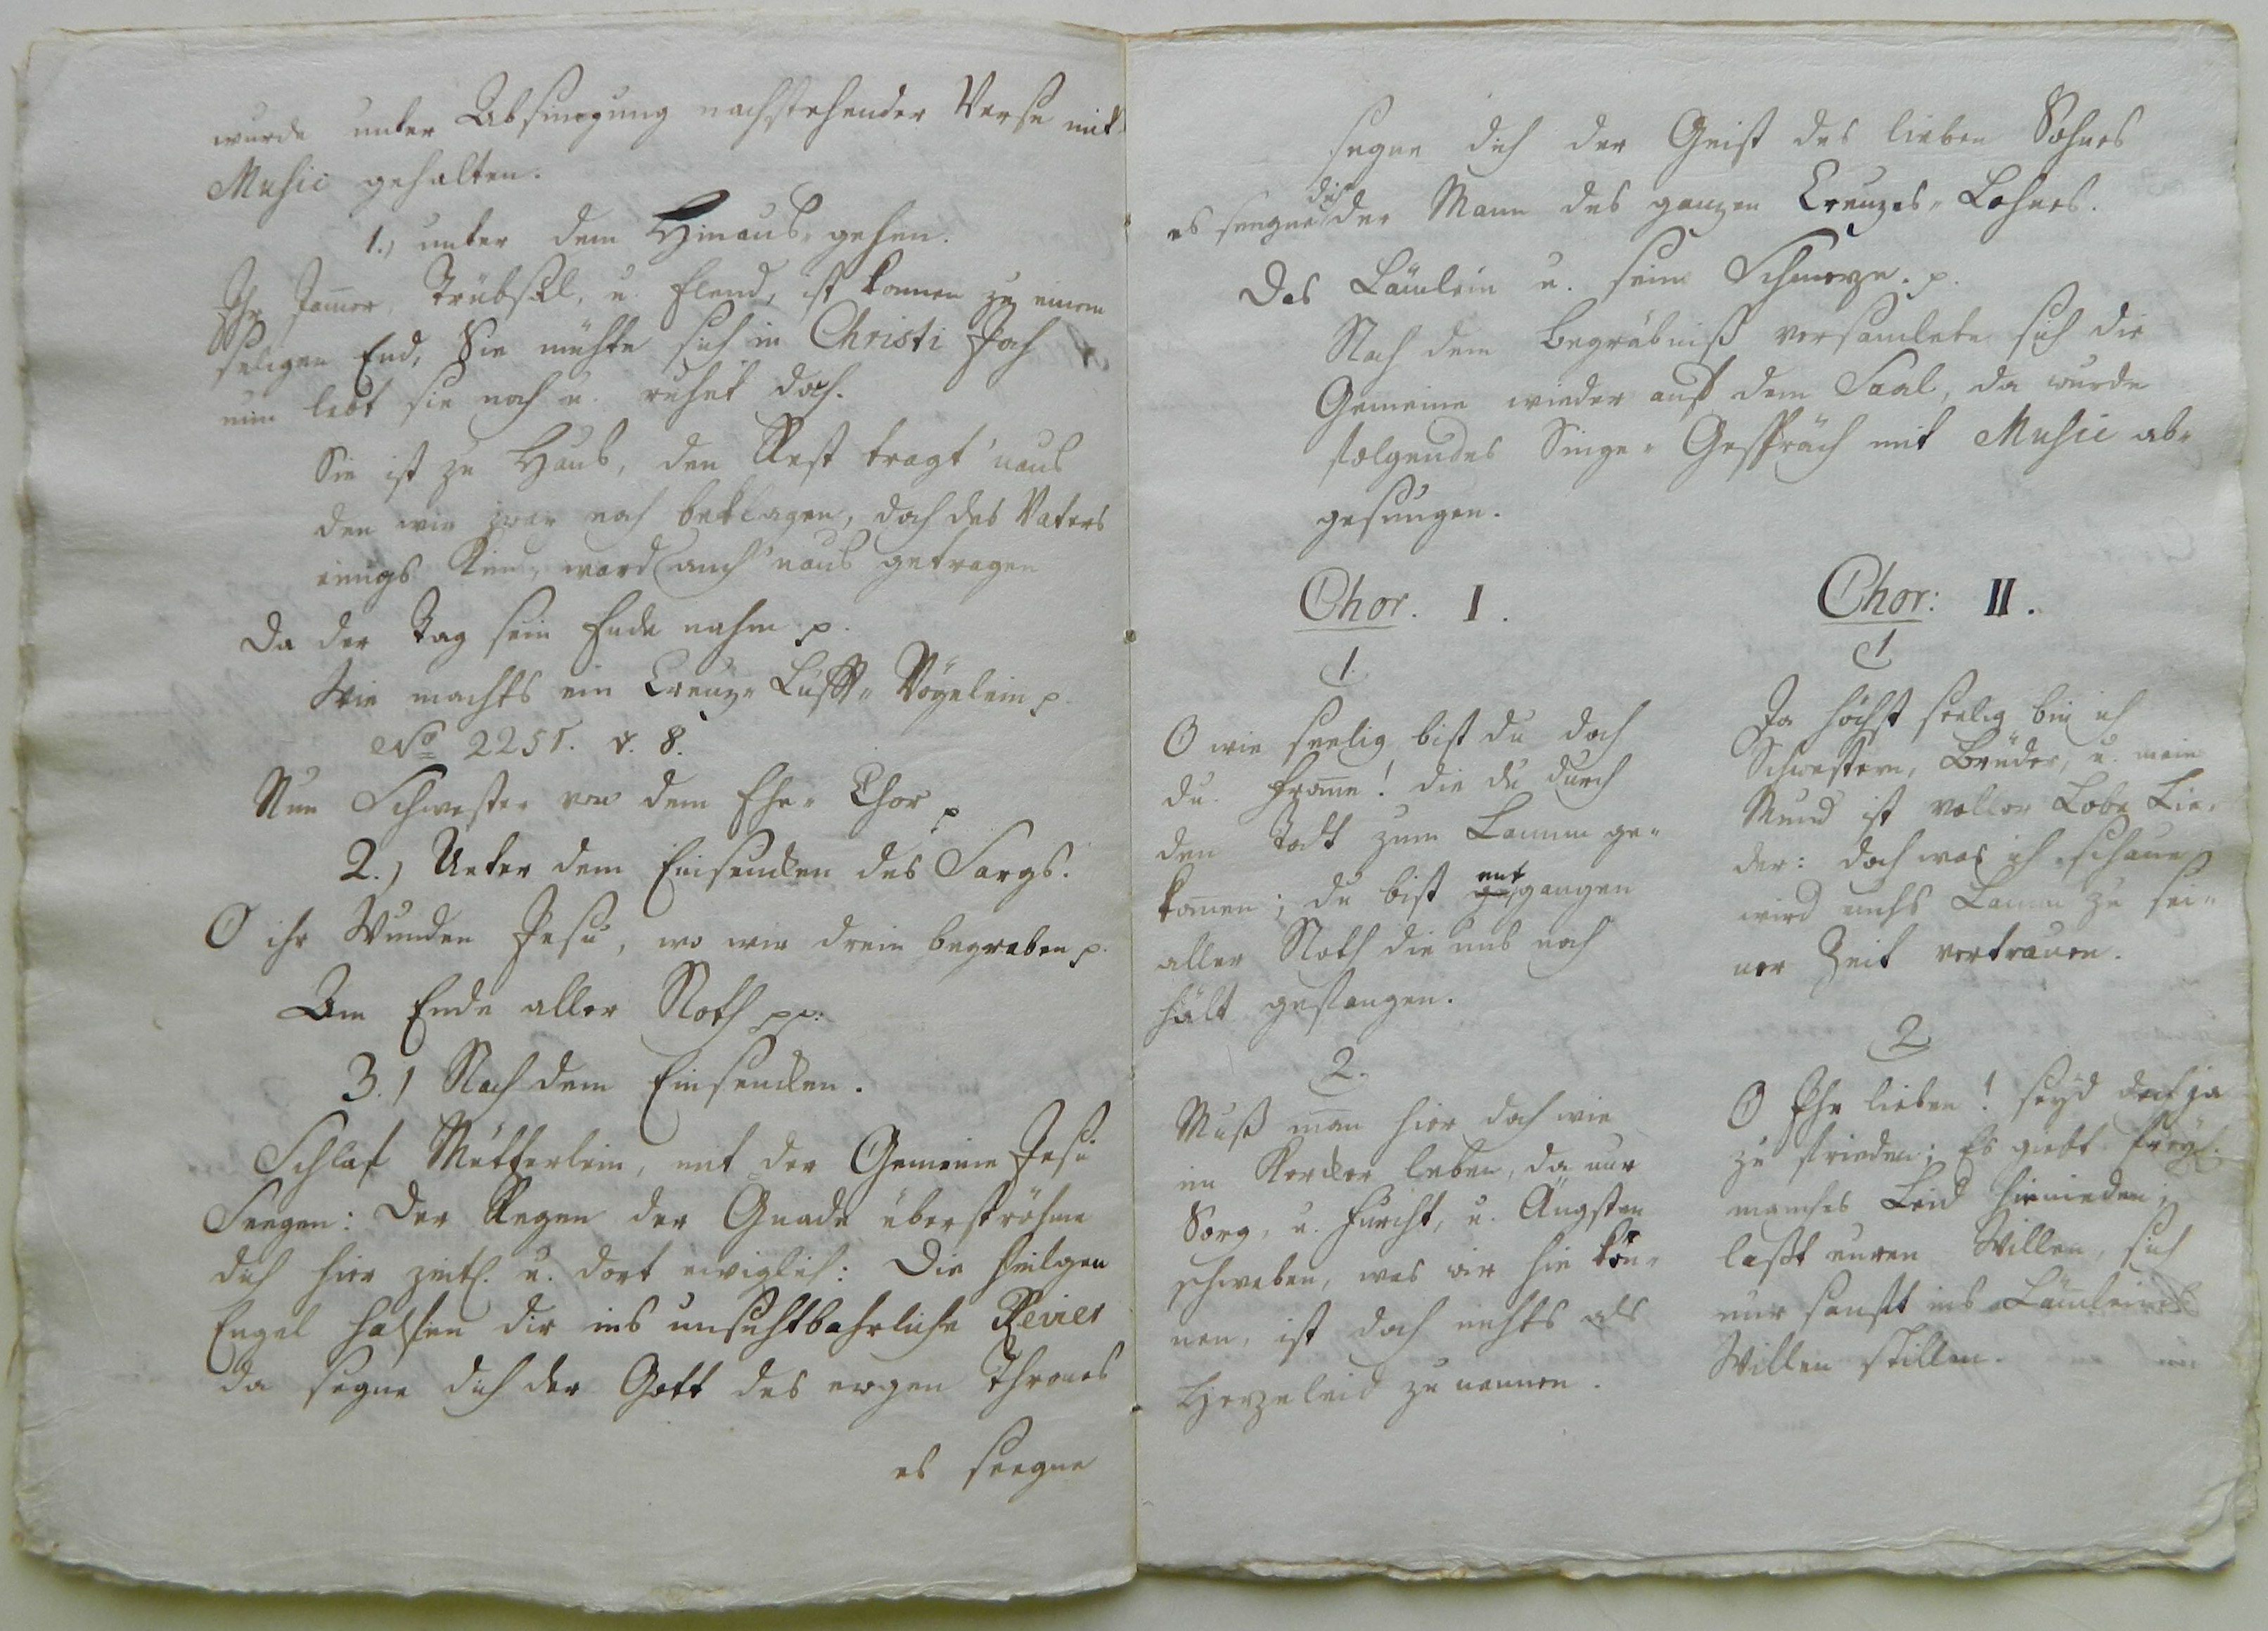 wurde unter Absingung nachstehender Verse mit
Music gehalten.
1., unter dem Hinaus-gehen.
Ihr Jam̄er, Trübsal, u. Elend, ist kommen zu einem
seligen End, Sie muhte sich in Christi Joch
nun lebt sie noch u. ruhet doch.
Sie ist zu Haus, den Rest tragt 'naus
den wir zwar noch beklagen, doch des Vaters
einigs Kind, ward auch 'naus getragen
Da der Tag sein Ende nahm p.
Wie machts ein Creuz-Lufft-Vögelein p.
No 2251. v. 8.
Nun Schwester von dem Ehe-Chor p
2.) Unter dem Einsencken des Sargs.
O ihr Wunden Jesu, wo wir drein begraben p.
Am Ende aller Noth pp.
3.) Nach dem Einsencken.
Schlaf Mütterlein, mit der Gemeine Jesu
Seegen: Der Regen der Gnade überströhme
dich hier zeitl. u. dort ewiglich: Die heilgen
Engel halfen dir ins unsichtbahrliche Revier
da segne dich der Gott des ewgen Thrones
es seegne
segne dich der Geist des lieben Sohnes
es seegne dich der Mann des ganzen Creuzes-Lohnes.
Das Läm̄lein u. seine Schmerze. p.
Nach dem Begräbniß versamlete sich die
Gemeine wieder auf dem Saal, da wurde
folgendes Singe-Gespräch mit Music ab-
gesungen.
Chor. I.
1.
O wie seelig bist du doch
du From̄e! die du durch
den Todt zum Lamme ge-
kom̄en; du bist entgangen
aller Noth die uns noch
hält gefangen.
2.
Muß man hier doch wie
im Kercker leben, da nur
Sorg, u. Furcht, u. Ängsten
schweben, was wir hie kön-
nen, ist doch nichts als
Herzeleid zu nennen.
Chor: II.
1
Ja höchst seelig bin ich
Schwestern, Brüder, u. mein
Mund ist voller Lobe Lie-
der: doch was ich schaue
wird euchs Lamm zu sei-
ner Zeit vertrauen.
2
O Ihr lieben! seyd doch ja
zu frieden; Es giebt freyl.
manches Leid hienieden;
laßt euren Willen, sich
nur sanft ins Läm̄leins
Willen stillen.